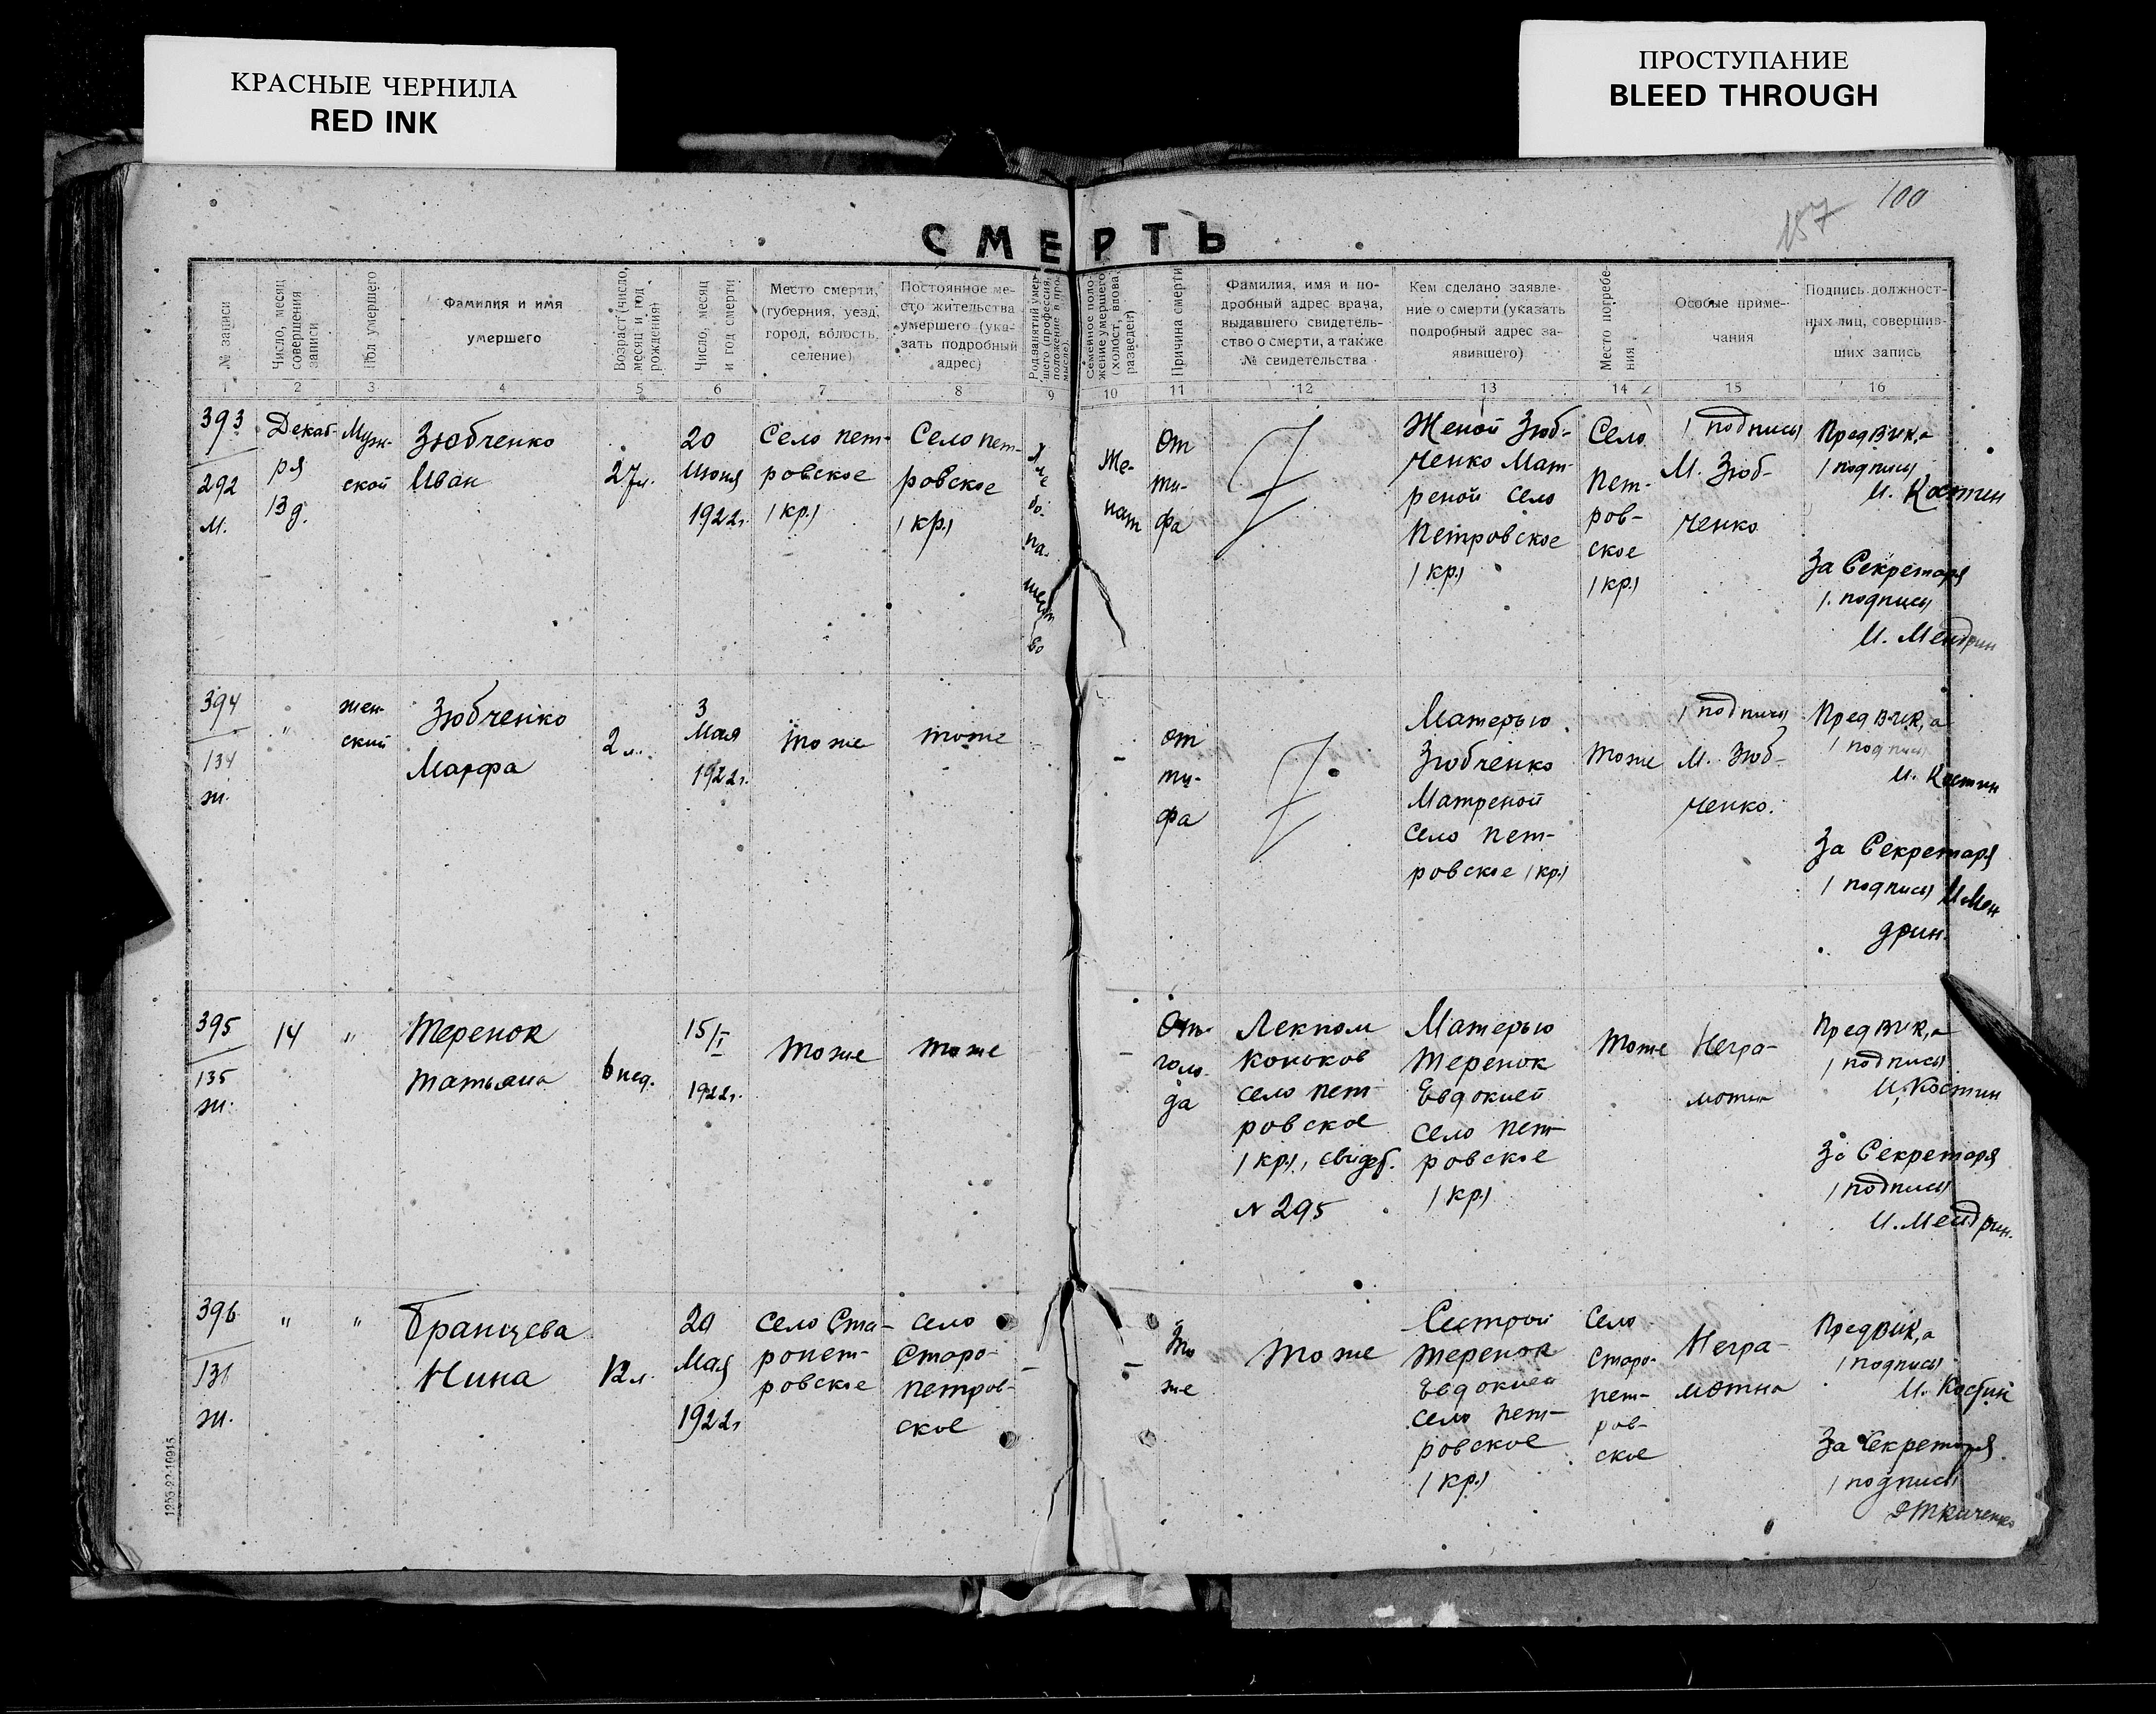 КРАСНЫЕ ЧЕРНИЛА
RED INK
ПРОСТУПАНИЕ
BLEED THROUGH
100
157
СМЕРТЬ
№ записи
Число, месяц
совершения
записи
Пол умершего
Фамилия и имя
умершего
Возраст (число,
месяц и год
рождения)
Число, месяц
и год смерти
Место смерти,
(губерния, уезд,
город, волость,
селение)
Постоянное ме-
сто жительства
умершего (ука-
зать подробный
адрес)
Род занятий умер-
шего (профессия,
положение в про-
мысле).
Семейное поло-
жение умершего
(холост, вдова,
разведен)
Причина смерти
Фамилия, имя и по-
дробный адрес врача,
выдавшего свидетель-
ство о смерти, а также
№ свидетельства
Кем сделано заявле-
ние о смерти (указать
подробный адрес за-
явившего)
Место погребе-
ния
Особые приме-
чания
Подпись должност-
ных лиц, совершив-
ших запись
1 2 3 4 5 6 7 8 9 10 11 12 13 14 15 16
393
292
м.
Декаб-
ря
13 д.
Муж-
ской
Зюбченко
Иван
27 л.
20
Июня
1922 г.
Село Пет-
ровское
/кр./
Село Пет-
ровское
/кр./
Хле
бо-
па-
шест
во
Же-
нат
От
ти-
фа
Женой Зюб-
ченко Мат-
реной село
Петровское
/кр./
Село
Пет-
ров-
ское
/кр./
/подпись/
М. Зюб-
ченко
Пред ВИК,а
/подпись/
И. Костин
За Секретаря
/подпись/
И. Мендрин
394
134
ж.
"
жен-
ский
Зюбченко
Марфа
2 л.
3
Мая
1922 г.
тоже
тоже
-
от
ти-
фа
Матерью
Зюбченко
Матреной
село Пет-
ровское /кр./
тоже
/подпись/
М. Зюб-
ченко.
Пред ВИК,а
/подпись/
И. Костин
За Секретаря
/подпись/ И. Мен
дрин.
395
135
ж.
14
"
Теренок
Татьяна
6 нед.
15/I
1922 г.
тоже
тоже
-
От
голо-
да
Лекпом
Коньков
село Пет
ровское
/кр./, свидет.
№ 295
Матерью
Теренок
Евдокией
село Пет-
ровское
/кр./
тоже
Негра-
мотна
Пред ВИК,а
/подпись/
И. Костин
За Секретаря
/подпись/
И. Мендрин.
396
131
ж.
"
"
Бранцева
Нина
12 л.
20
Мая
1922 г.
село Ста-
ропет-
ровское
село
Старо-
петров-
ское
-
-
То
же
тоже
Сестрой
Теренок
Евдокией
село Пет-
ровское
/кр./
село
Старо-
пет-
ров-
ское
Негра-
мотна
Пред ВИК,а
/подпись/
И. Костин
За Секретаря
/подпись/
Ткаченко